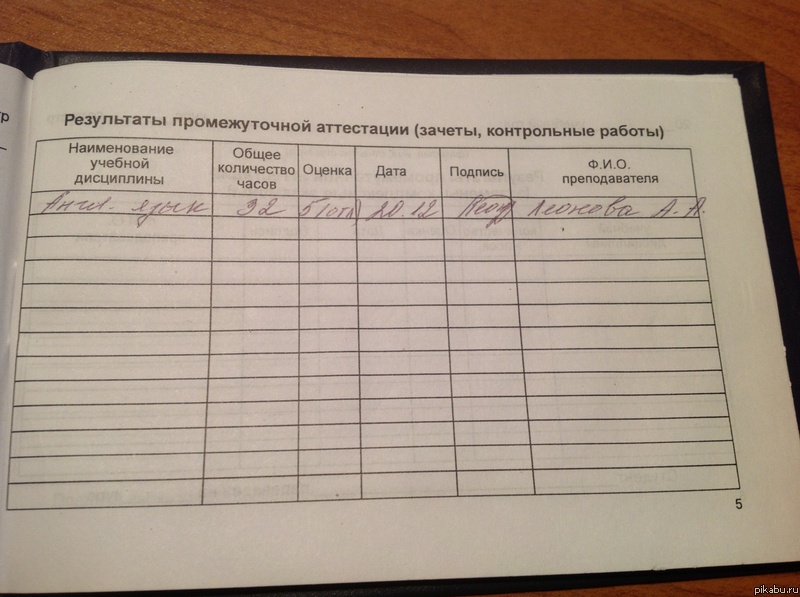 тр
Результаты промежуточной аттестации (зачеты, контрольные работы)
Наименование учебной дисциплины
Общее количество часов
Оценка
Дата
Подпись
Ф.И.О. преподавателя
Англ. язык 32 5 (отл) 20.12 Леонова А. А.
5
pikabu.ru